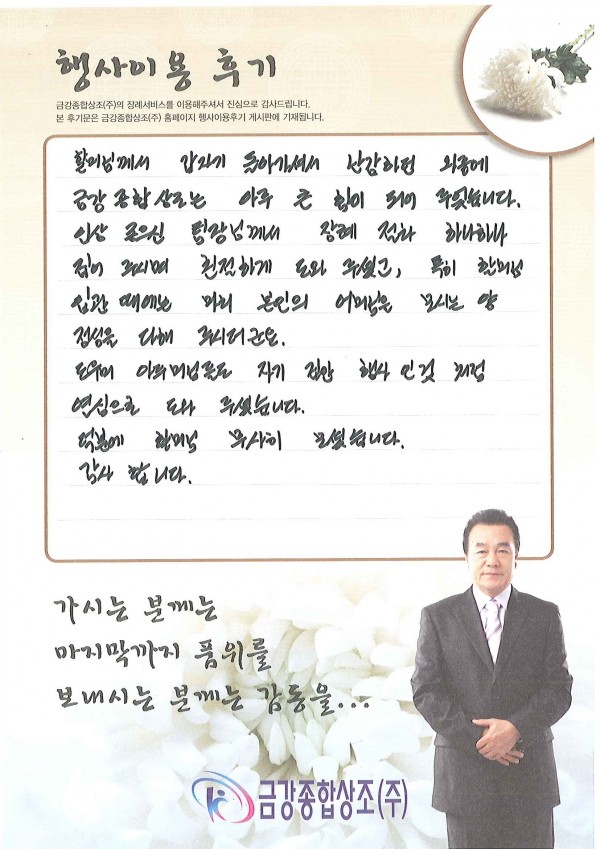 행사이용 후기
금강종합상조(주)의 장례서비스를 이용해주셔서 진심으로 감사드립니다.
본 후기문은 금강종합상조(주) 홈페이지 행사이용후기 게시판에 기재됩니다.
할머님께서 갑자기 돌아가셔서 난감하던 와중에
금강종합상조는 아주 큰 힘이 되어 주셨습니다.
인상 좋으신 팀장님께서 장례 절차 하나하나
집어 주시며 친절하게 도와 주셨고, 특히 할머님
입관 때에는 마치 본인의 어머님을 모시는 양
정성을 다해 주시더군요.
도우미 아주머님들도 자기 집안 행사인것 처럼
열심으로 도와 주셨습니다.
덕분에 할머님 무사히 모셨습니다.
감사 합니다.
가시는 분께는
마지막까지 품위를
보내시는 분께는 감동을...
금강종합상조(주)